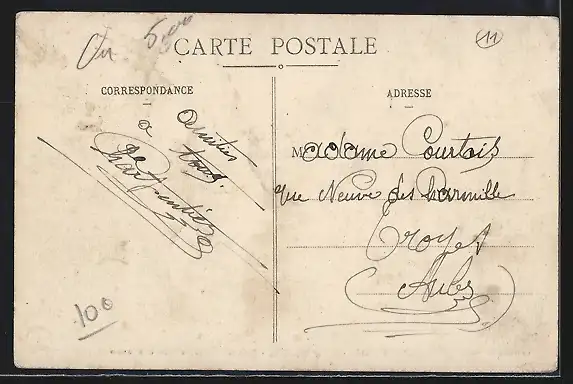 5,00
11
CARTE POSTALE
CORRESPONDANCE
ADRESSE
Amitiés
à tous.
Charpentier
Madame Courtois
rue Neuve des Charmille
Troyes
Aube
100